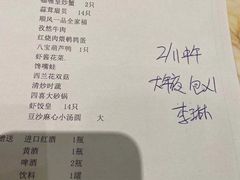 咖喱皇炒蟹 2只
蒜茸扇贝 14只
顺风一品全家福
孜然牛肉
红烧肉煨鹌鹑蛋
八宝葫芦鸭 1只
虾酱花菜
馋嘴蛙
西兰花双菇
清炒时蔬
四喜大砂锅
虾饺皇 14只
豆沙麻心小汤圆 大
赠送 进口红酒 1瓶
黄酒 1瓶
啤酒 2瓶
饮料 1罐
2/11 中午
大年夜 包
李琳